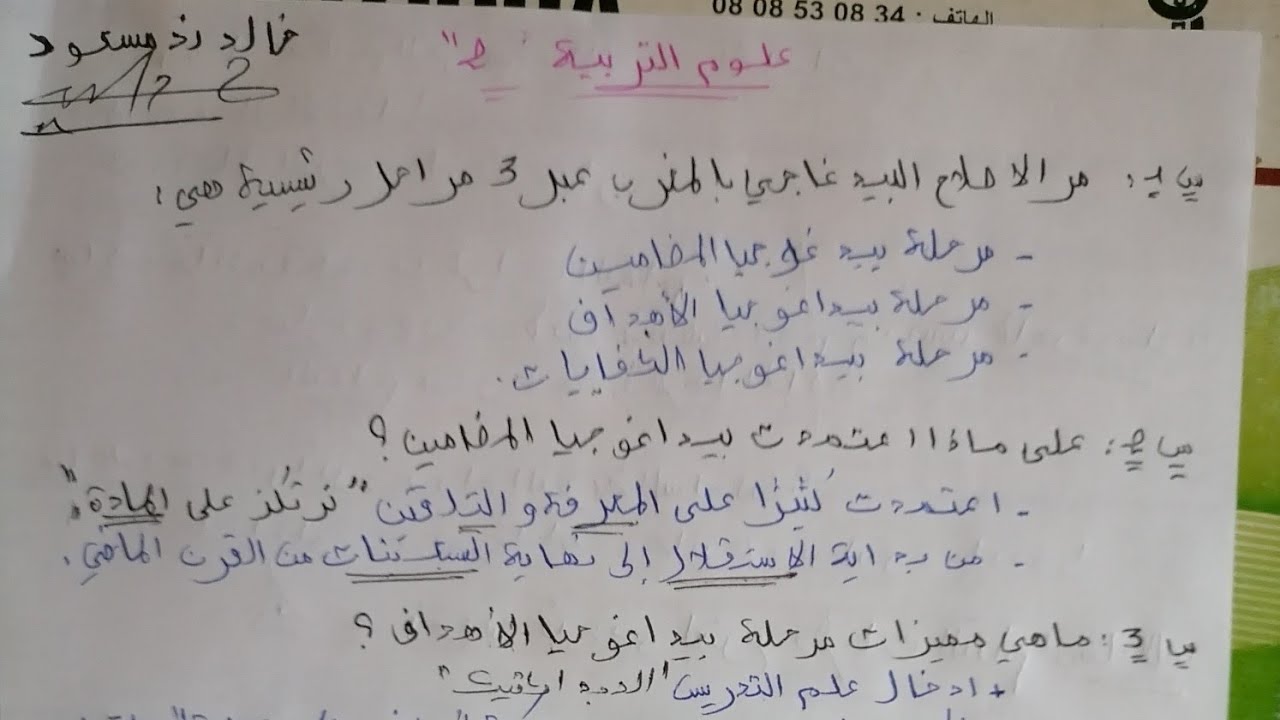 الهاتف : 34 08 53 08 08
خالد بن مسعود
علوم التربية "2"
س1: مر الاصلاح البيداغوجي بالمغرب عبر 3 مراحل رئيسية هي:
- مرحلة بيداغوجيا المضامين
- مرحلة بيداغوجيا الأهداف.
- مرحلة بيداغوجيا الكفايات.
س2: على ماذا اعتمدت بيداغوجيا المضامين؟
- اعتمدت كثيرًا على المعرفة و التلقين "ترتكز على المادة".
- من بداية الاستقلال إلى نهاية السبعينات من القرن الماضي.
س3: ماهي مميزات مرحلة بيداغوجيا الأهداف؟
+ ادخال علم التدريس "الديداكتيك"